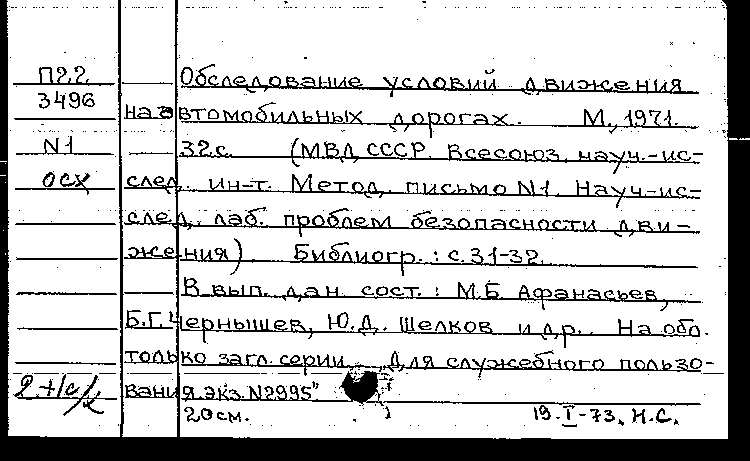 П22 Обследование условий движения
3496 на автомобильных дорогах. М., 1971.
N1 32с. (МВД СССР. Всесоюз. науч.-ис-
осх след. ин-т. Метод. письмо N1. Науч-ис-
след. лаб. проблем безопасности дви-
жения). Библиогр.: с. 31-32.
В вып. дан. сост.: М.Б. Афанасьев,
Б.Г. Чернышев, Ю.Д. Шелков и др. На обл.
только загл. серии. „Для служебного пользо-
вания. экз. N2995"
20см. 19.I-73. Н.С.